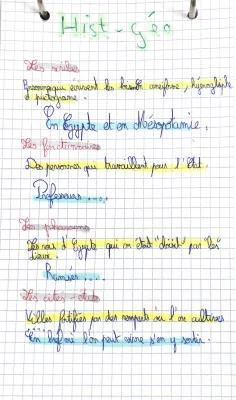 Hist - géo
Les scribes
Personne qui écrivent les cunéiforme, hyéroglyphe
et pictograme.
En Egypte et en Mésopotamie.
Les fonctionnaires
Des personnes qui travaillent pour l'état.
Professeurs .....
Les pharaons
Les rois d'Egypte qui on était "choisit" par les
Dieux.
Ramsès ....
Les cités - états
Villes fortifiés par des remparts où l'on cultive
l'on peut même s'en y sortir.